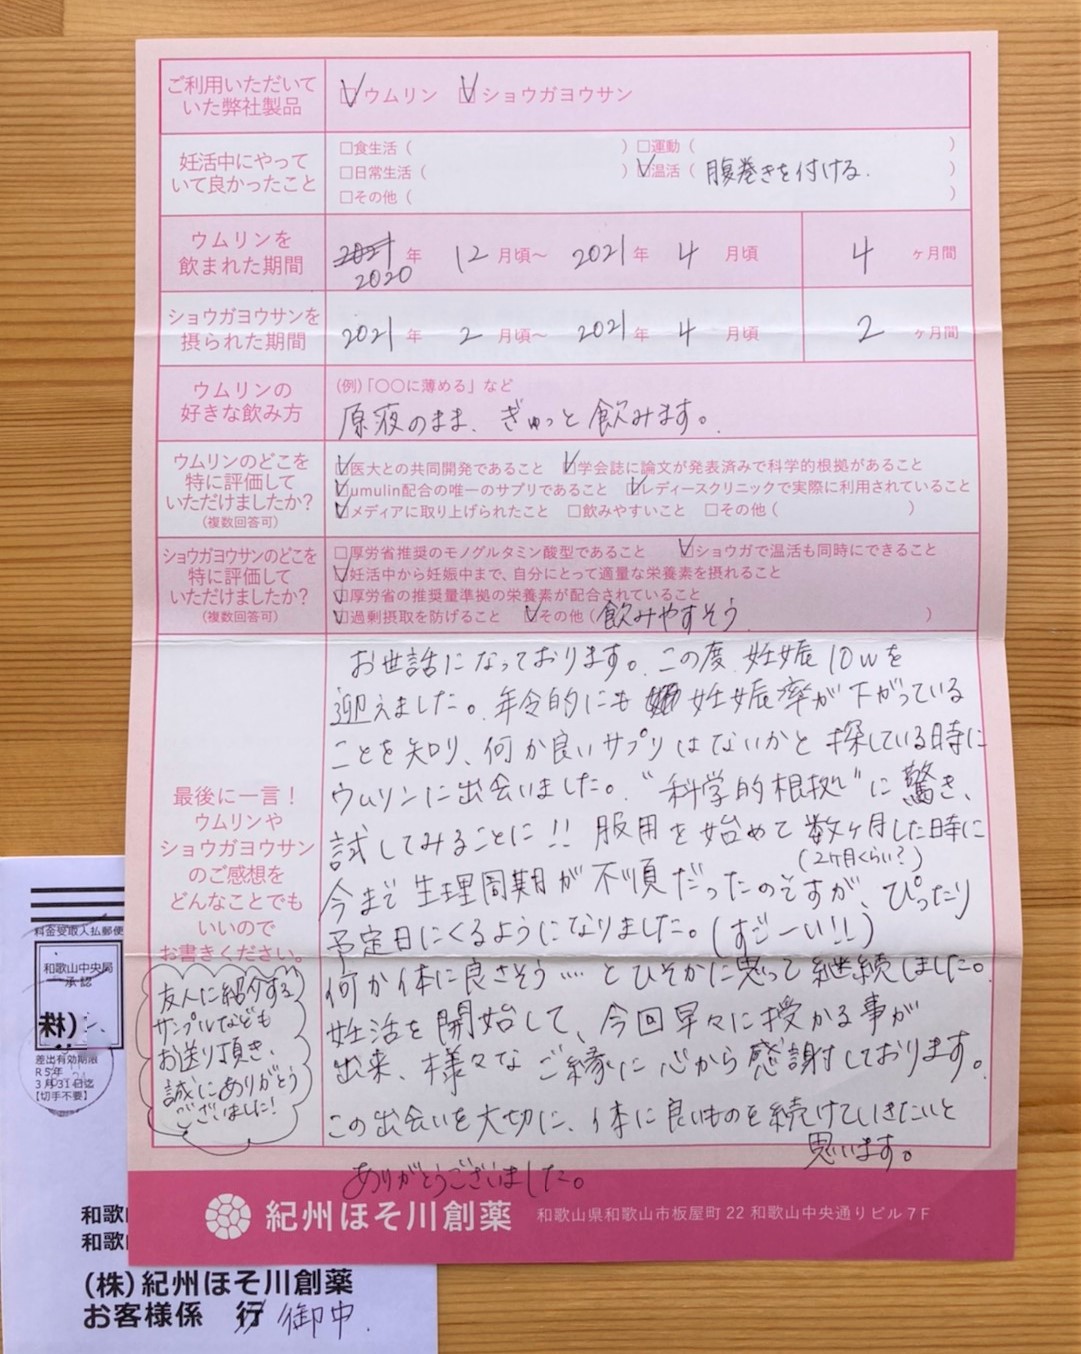 ご利用いただいて
いた弊社製品
☑ウムリン ☑ショウガヨウサン
妊活中にやって
いて良かったこと
□食生活( ) □運動( )
□日常生活( ) ☑温活( 腹巻きを付ける. )
□その他( )
ウムリンを
飲まれた期間
2021 年 12 月頃〜 2021 年 4 月頃 4 ヶ月間
2020
ショウガヨウサンを
摂られた期間
2021 年 2 月頃〜 2021 年 4 月頃 2 ヶ月間
ウムリンの
好きな飲み方
(例)「〇〇に薄める」など
原液のまま、ぎゅっと飲みます。
ウムリンのどこを
特に評価して
いただけましたか?
(複数回答可)
☑医大との共同開発であること ☑学会誌に論文が発表済みで科学的根拠があること
☑umulin配合の唯一のサプリであること ☑レディースクリニックで実際に利用されていること
☑メディアに取り上げられたこと □飲みやすいこと □その他( )
ショウガヨウサンのどこを
特に評価して
いただけましたか?
(複数回答可)
□厚労省推奨のモノグルタミン酸型であること ☑ショウガで温活も同時にできること
☑妊活中から妊娠中まで、自分にとって適量な栄養素を摂れること
☑厚労省の推奨量準拠の栄養素が配合されていること
☑過剰摂取を防げること ☑その他( 飲みやすそう )
最後に一言!
ウムリンや
ショウガヨウサン
のご感想を
どんなことでも
いいので
お書きください。
お世話になっております。この度、妊娠10wを
迎えました。年令的にも 妊娠率が下がっている
ことを知り、何か良いサプリはないかと探している時に
ウムリンに出会いました。"科学的根拠"に驚き、
試してみることに!! 服用を始めて数ヶ月した時に
(2ヶ月くらい?)
今まで生理周期が不順だったのですが、ぴったり
予定日にくるようになりました。(すごーい!!)
何か体に良さそう…… とひそかに思って継続しました。
妊活を開始して、今回早々に授かる事が
出来、様々なご縁に心から感謝しております。
この出会いを大切に、体に良いものを続けていきたいと
思います。
ありがとうございました。
友人に紹介する
サンプルなども
お送り頂き、
誠にありがとう
ございました!
紀州ほそ川創薬 和歌山県和歌山市板屋町22 和歌山中央通りビル7F
料金受取人払郵便
和歌山中央局
承認
差出有効期限
R5年
3月31日迄
【切手不要】
和歌
和歌
(株)紀州ほそ川創薬
お客様係 行 御中.